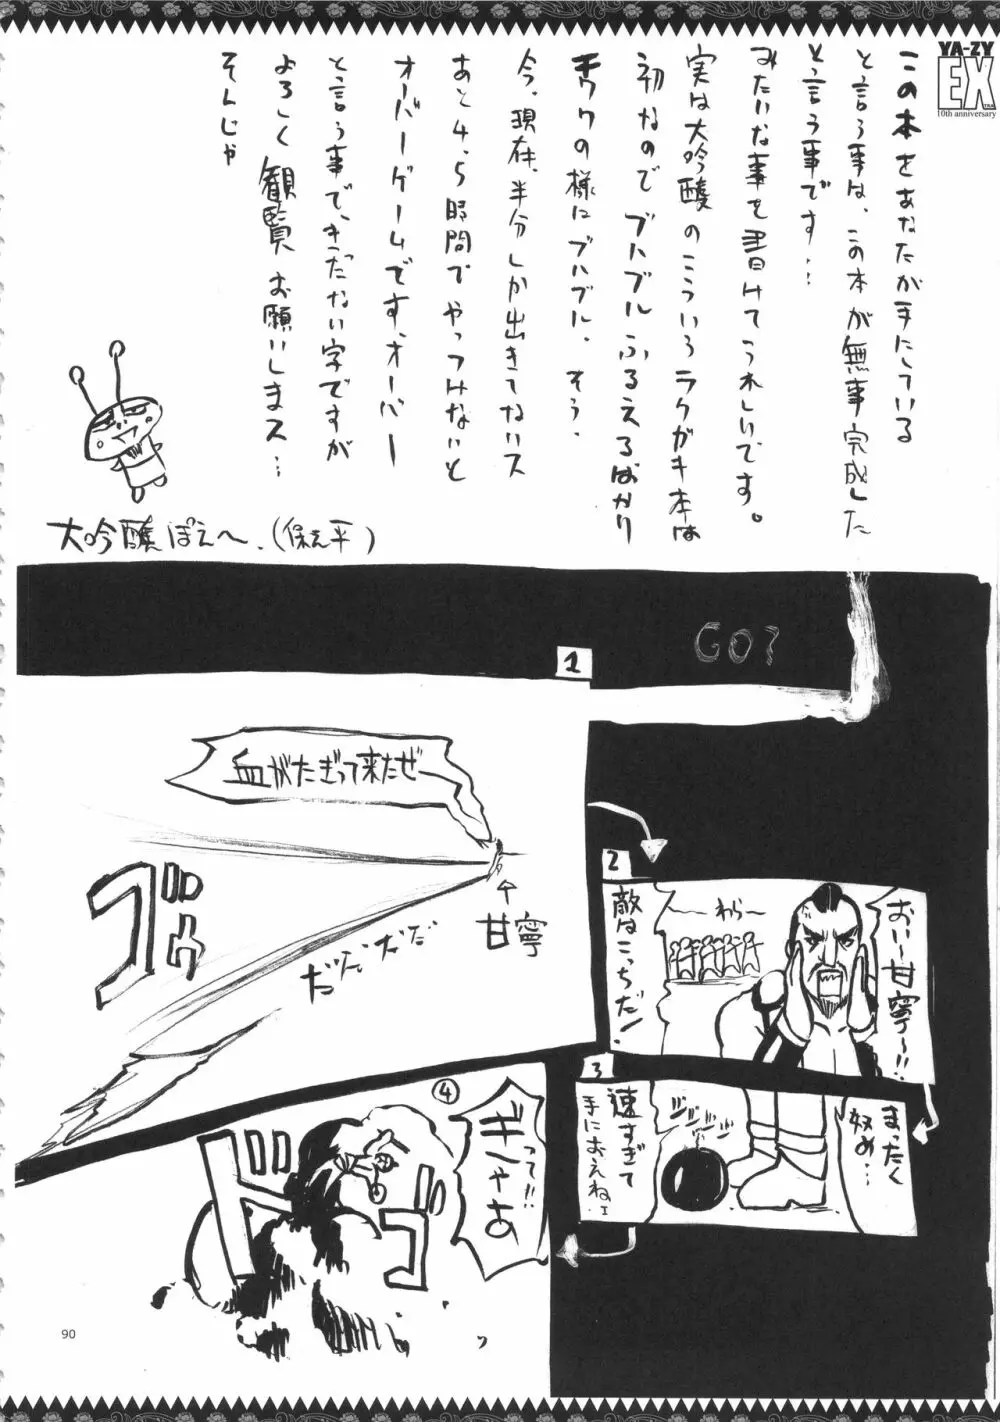 YA-ZY
EX
TRA
10th anniversary
この本をあなたが手にしている
と言う事は、この本が無事完成した
と言う事です…
みたいな事を書けてうれしいです。
実は大吟醸のこういうラクガキ本は
初なのでブルブルふるえるばかり
チワワの様にブルブル、そう、
今、現在、半分しか出きてないス
あと4、5時間でやっつけないと
オーバーゲームです、オーバー
と言う事で、きったない字ですが
よろしく観覧お願いしまス…
そんじゃ
大吟醸ぽえ〜.(保え平)
GO?
1
血がたぎって来たぜ
ゴゥ
甘寧
だだだだ
2
おい〜甘寧〜!!
わら〜
敵はこっちだ!
3
まったく
奴め…
ジジジ
速すぎて
手におえねェ
④
ぎゃあ
って!!
ドゴ
90